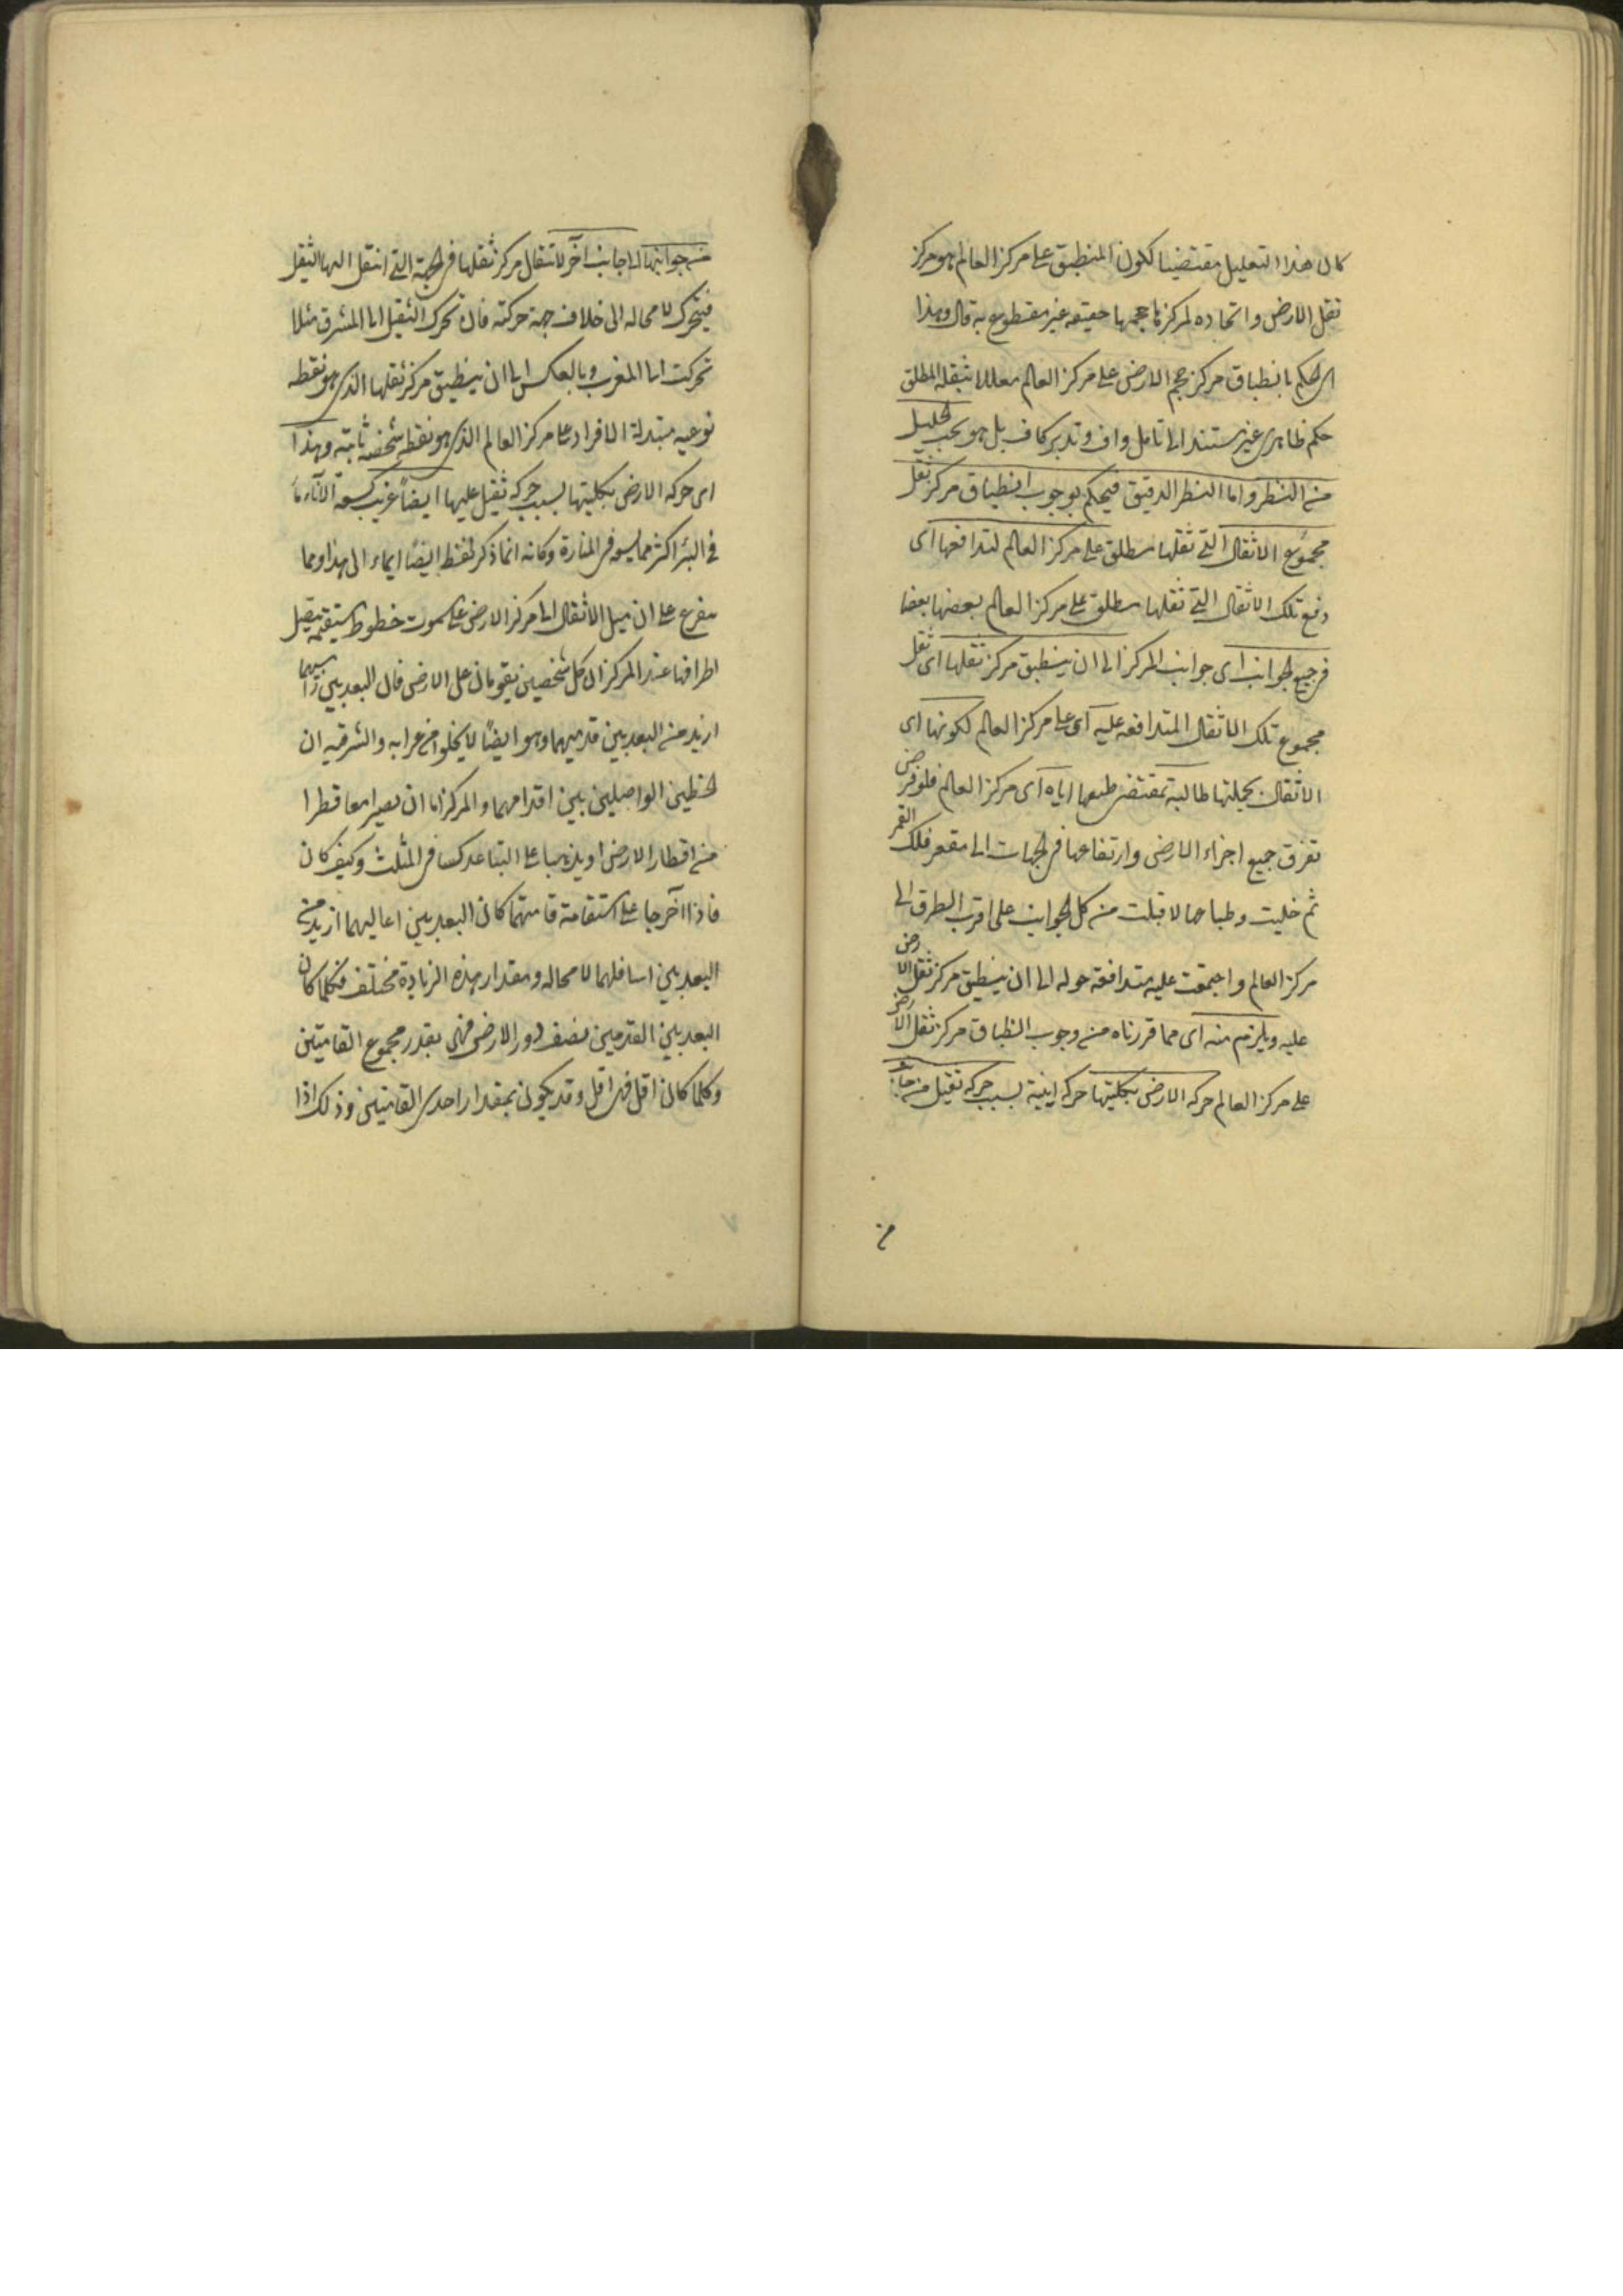 كان هذا التعليل مقتضيا لكون المنطبق على مركز العالم هو مركز
ثقل الارض واتحاده لمركز حجمها حقيقه غير مقطوع به قال وهذا
اى الحكم بانطباق مركز حجم الارض على مركز العالم معللا بثقله المطلق
حكم ظاهرى غير مستند الى تامل واف وتدبر كاف بل هو بحسب الجليل
من النظر واما النظر الدقيق فيحكم بوجوب انطباق مركز ثقل
مجموع الاثقال التى ثقلها مطلق على مركز العالم لتدافعها اى
دفع تلك الاثقال التى ثقلها مطلق على مركز العالم بعضها بعضا
فى جميع الجوانب اى جوانب المركز الى ان ينطبق مركز ثقلها اى ثقل
مجموع تلك الاثقال المتدافعه عليه اى على مركز العالم لكونها اى
الاثقال بجملتها طالبة بمقتضى طبعها اياه اى مركز العالم فلو فرض
تفرق جميع اجزاء الارض وارتفاعها فى الجهات الى مقعر فلك القمر
ثم خليت وطباعها لاقبلت من كل الجوانب على اقرب الطرق الى
مركز العالم واجتمعت عليه متدافعة حوله الى ان ينطبق مركز ثقل الارض
عليه ويلزم منه اى مما قررناه من وجوب انطباق مركز ثقل الارض
على مركز العالم حركه الارض بكليتها حركه اينية بسبب حركه ثقيل من جانب
من
من جوانبها الى جانب آخر لانتقال مركز ثقلها فى الجهة التى انتقل اليها الثقيل
فيتحرك لا محاله الى خلاف جهة حركته فان تحرك الثقيل الى المشرق مثلا
تحركت الى المغرب وبالعكس الى ان ينطبق مركز ثقلها الذى هو نقطه
نوعيه متبدلة الافراد على مركز العالم الذى هو نقطه شخصيه ثابته وهذا
اى حركه الارض بكليتها بسبب حركه ثقيل عليها ايضاً غريب كسعة الاناء ماء
فى البئر اكثر مما يسعه فى المنارة وكانه انما ذكر لفظ ايضاً ايماء الى هذا ومما
يتفرع على ان ميل الاثقال الى مركز الارض على سموت خطوط مستقيمه يتصل
اطرافها عند المركز ان كل شخصين يقومان على الارض فان البعد بين راسيهما
ازيد من البعد بين قدميهما وهو ايضاً لا يخلو من غرابه والسر فيه ان
الخطين الواصلين بين اقدامهما والمركز اما ان يصيرا معا قطرا
من اقطار الارض او يذهبا على التباعد كساقى المثلث وكيف كان
فاذا اخرجا على استقامة قامتهما كان البعد بين اعاليهما ازيد من
البعد بين اسافلهما لا محاله ومقدار هذه الزيادة مختلف فكلما كان
البعد بين القدمين نصف دور الارض فهى بقدر مجموع القامتين
وكلما كان اقل فهى اقل وقد يكون بمقدار احدى القامتين وذلك اذا